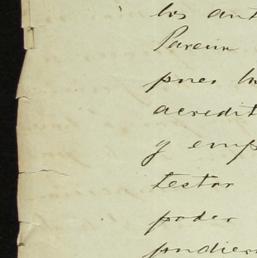 los ant
Parcin
pues h
acredit
y emp
testar
poder
pudier